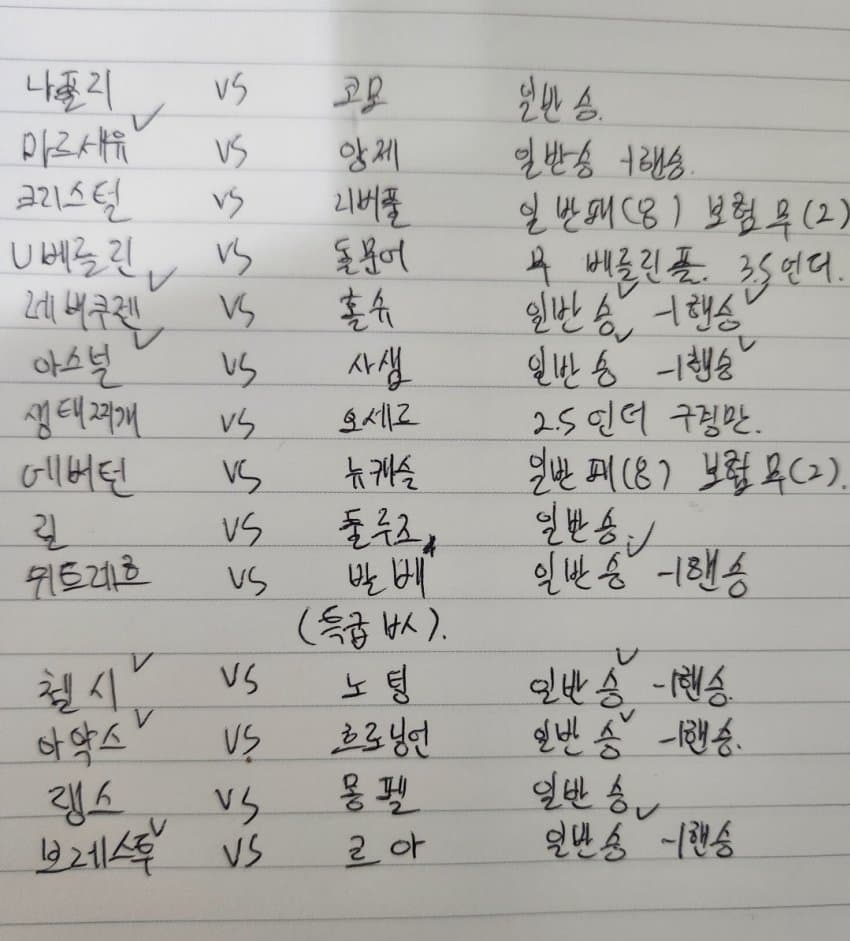 나폴리 VS 코모 일반 승.
마르세유 VS 앙제 일반승 -1핸승.
크리스털 VS 리버풀 일반패(8) 보험무(2)
U베를린 VS 돌문어 무 베를린플. 3.5언더.
레버쿠젠 VS 홀슈 일반승 -1핸승
아스널 VS 사샘 일반승 -1핸승
생태찌개 VS 오세르 2.5언더 구힁만.
에버턴 VS 뉴캐슬 일반패(8) 보험무(2).
릴 VS 툴루즈 일반승.
위트레흐 VS 발베 일반승 -1핸승
(특급 VS).
첼시 VS 노팅 일반승 -1핸승.
아약스 VS 흐로닝언 일반승 -1핸승.
랭스 VS 몽펠 일반승
브레스투 VS 르아 일반승 -1핸승